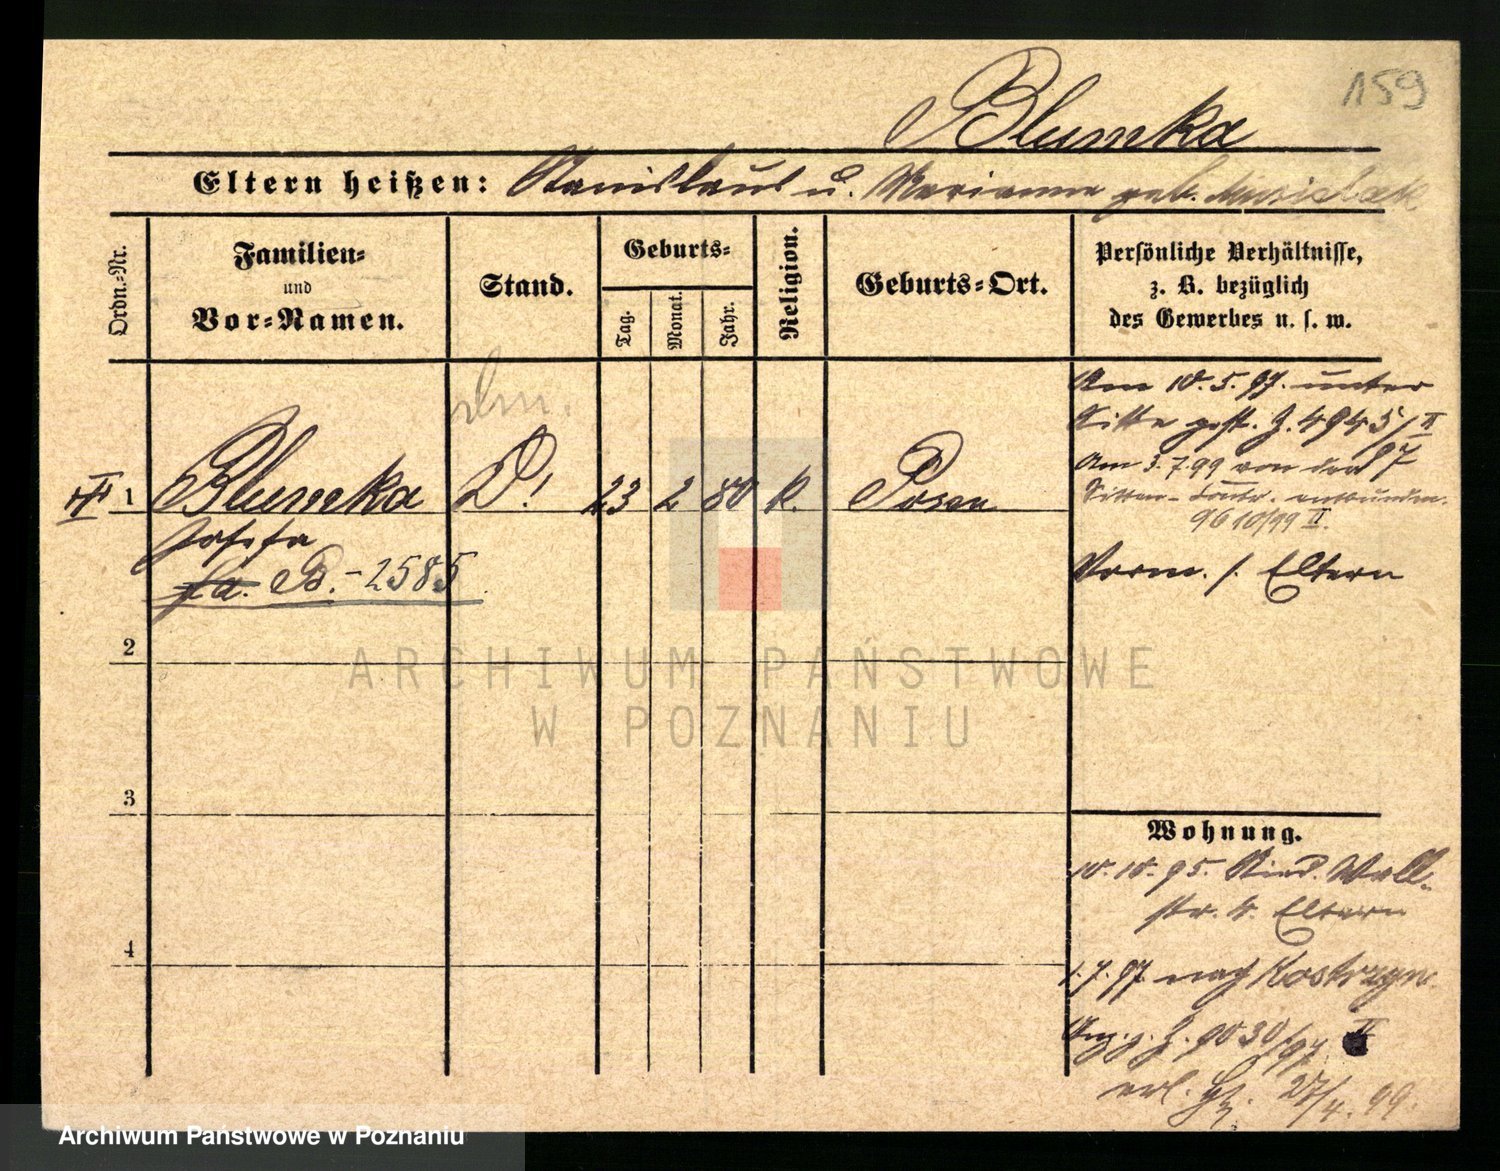 159
Blumka
Eltern heißen: Stanislaus u. Marianna geb. Musielak
Ordn.-Nr.
Familien-
und
Vor-Namen.
Stand.
Geburts-
Tag.
Monat.
Jahr.
Religion.
Geburts-Ort.
Persönliche Verhältnisse,
z. B. bezüglich
des Gewerbes u. s. w.
1 Blumka D! 23 2 80 k. Posen
Josefa
B. - 2585
Am 10. 5. 97. unter
Sitte gest. J. 4945/II
97
Am 3. 7. 99 von der
Sitten - Contr. entbunden.
9610/99 II.
Vorm. s. Eltern
2
3
4
Wohnung.
10. 10. 95. Wall-
str. 4. Eltern
1. 7. 97. nach Kostrzyn.
J. 9030/97 II
27/4. 99.
ARCHIWUM PAŃSTWOWE
W POZNANIU
Archiwum Państwowe w Poznaniu